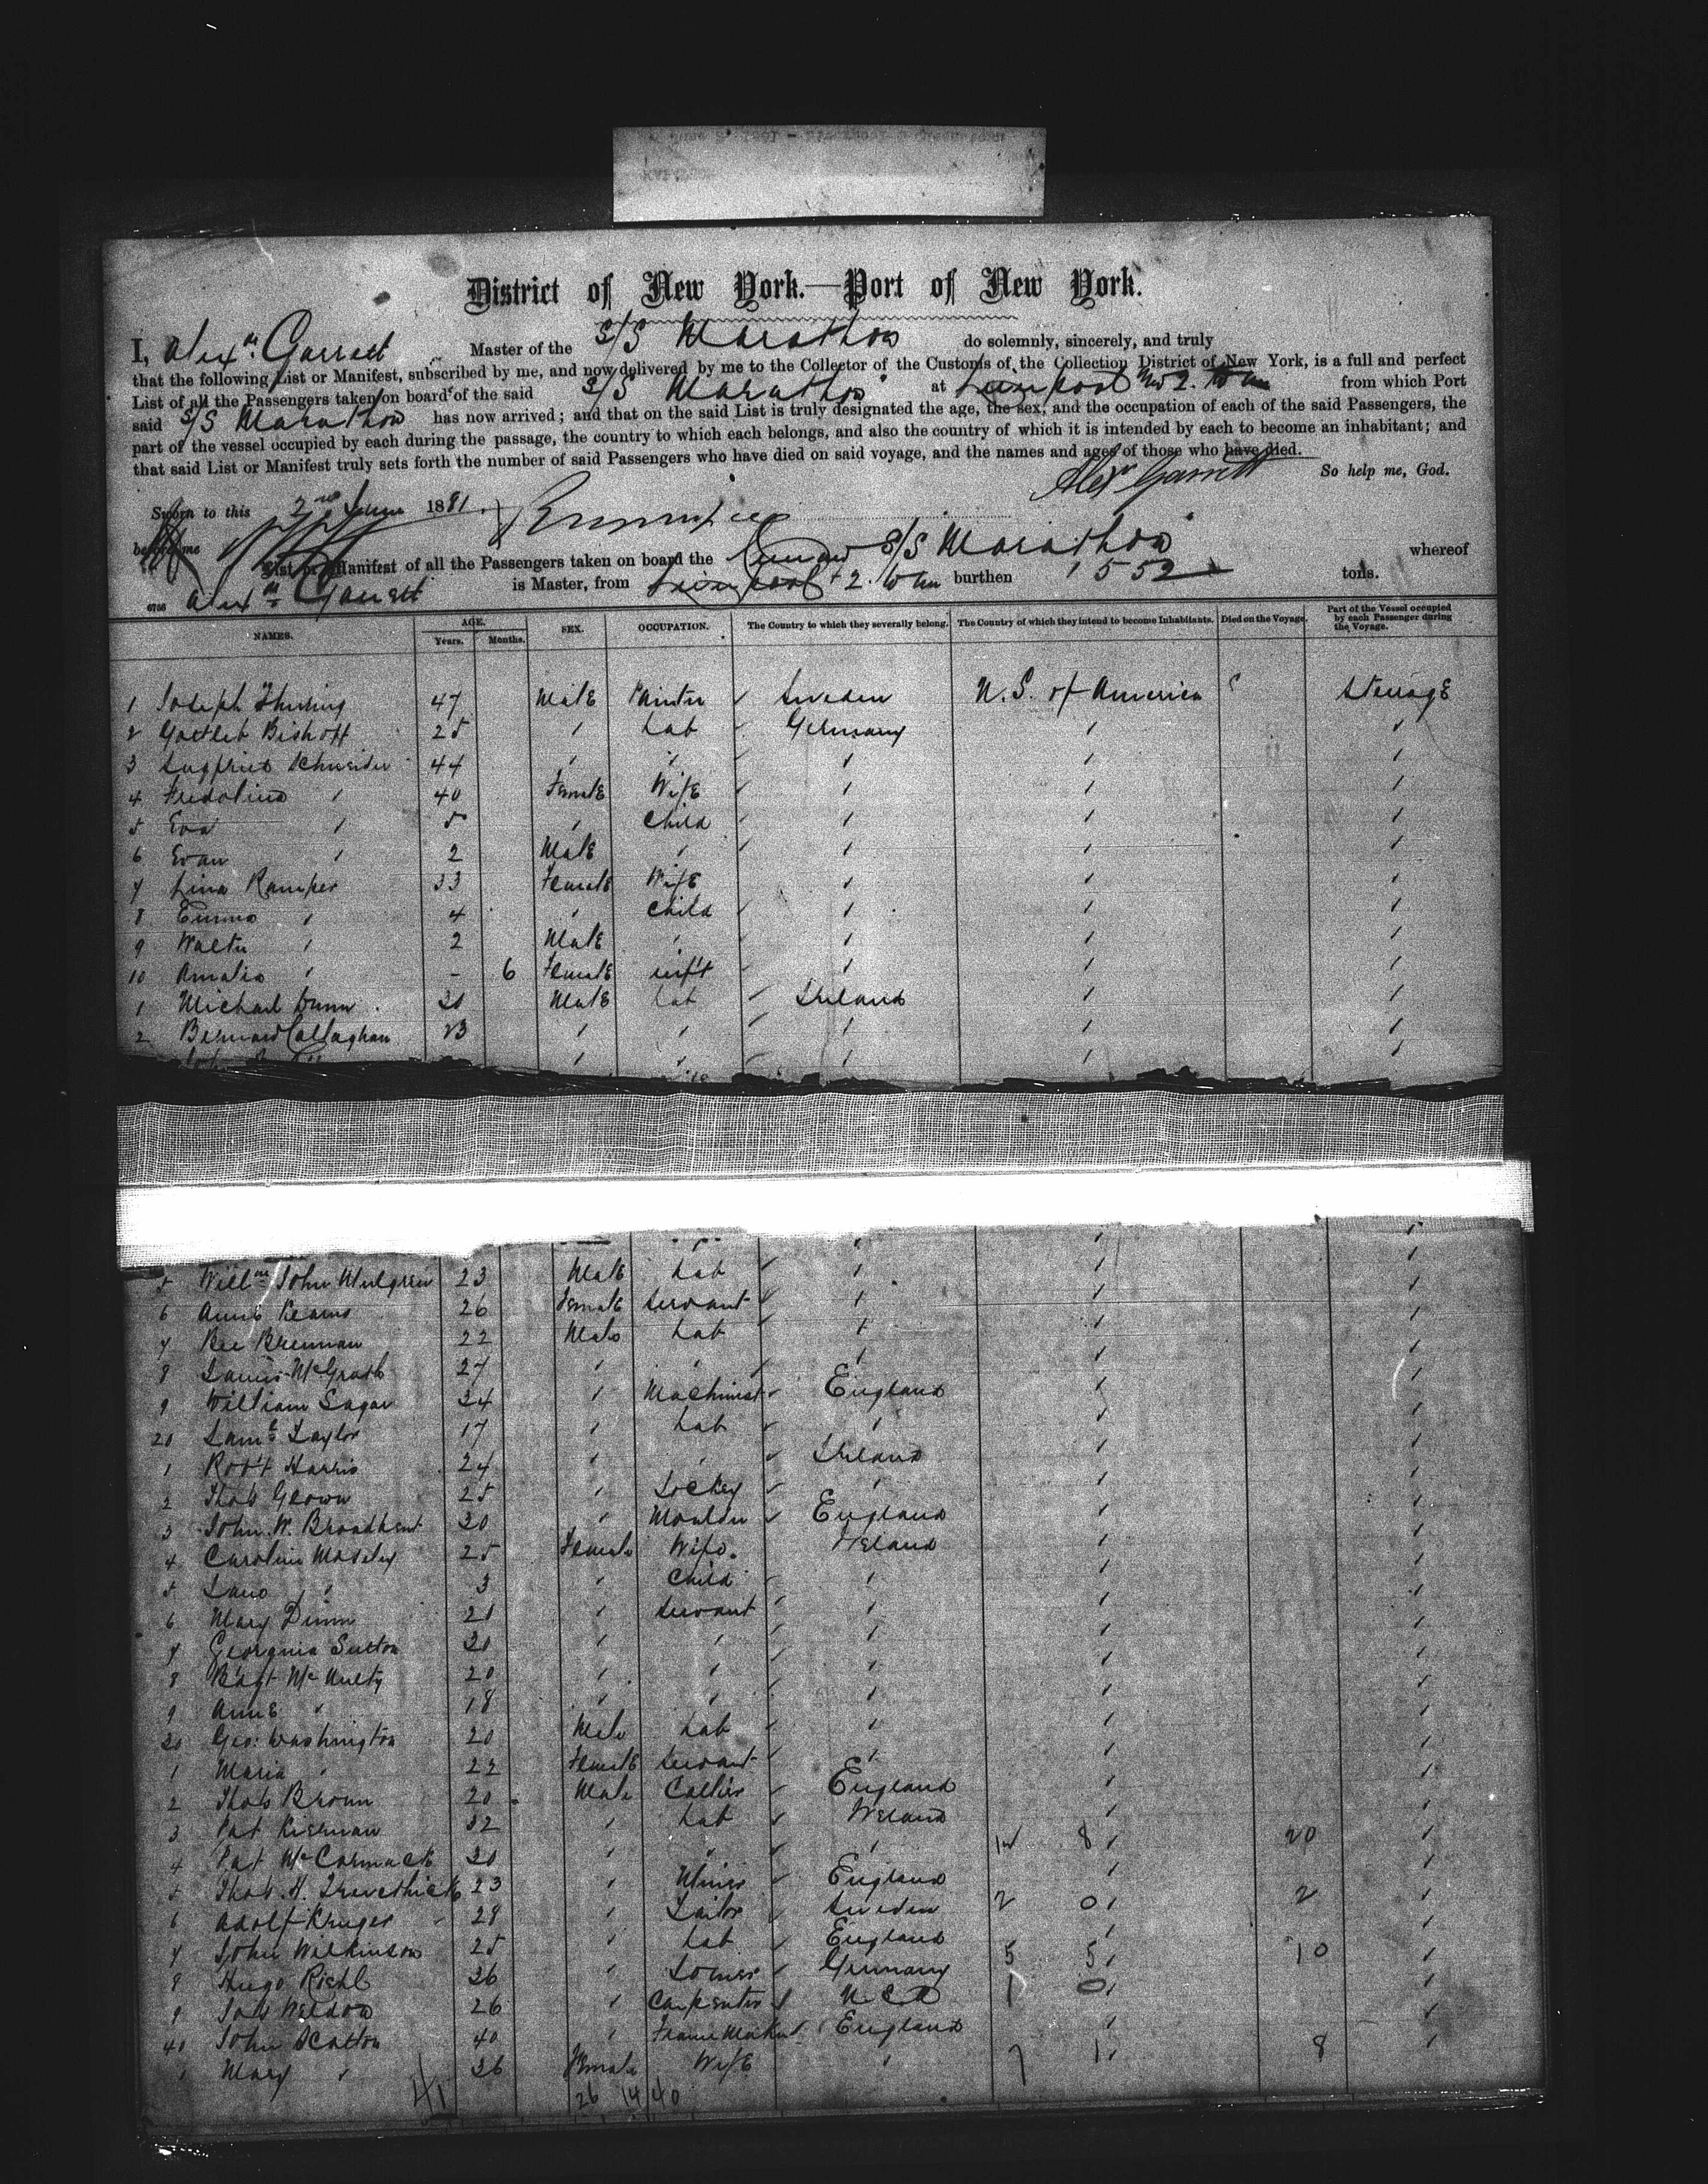 District of New York.—Port of New York.
I, Alexr. Garrett Master of the S/S Marathon do solemnly, sincerely, and truly
that the following List or Manifest, subscribed by me, and now delivered by me to the Collector of the Customs of the Collection District of New York, is a full and perfect
List of all the Passengers taken on board of the said S/S Marathon at Liverpool and Q. Town from which Port
said S/S Marathon has now arrived; and that on the said List is truly designated the age, the sex, and the occupation of each of the said Passengers, the
part of the vessel occupied by each during the passage, the country to which each belongs, and also the country of which it is intended by each to become an inhabitant; and
that said List or Manifest truly sets forth the number of said Passengers who have died on said voyage, and the names and ages of those who have died.
Alexr Garrett So help me, God.
Sworn to this 2nd June 1881.
before me
List or Manifest of all the Passengers taken on board the Cunard S/S Marathon whereof
Alexr. Garrett is Master, from Liverpool + Q. Town burthen 1552 tons.
6756
NAMES. AGE. Years. Months. SEX. OCCUPATION. The Country to which they severally belong. The Country of which they intend to become Inhabitants. Died on the Voyage. Part of the Vessel occupied by each Passenger during the Voyage.
1 Joseph 47 Male Painter Sweden U.S. of America Steerage
2 Gottlieb Bishoff 25 " Lab Germany " "
3 Schneider 44 " " " " "
4 " 40 Female Wife " " "
5 Eva " 5 " Child " " "
6 Evan " 2 Male " " " "
7 Lina Kamper 33 Female Wife " " "
8 Emma " 4 " Child " " "
9 Walter " 2 Male " " " "
10 Amalia " - 6 Female inf't " " "
1 Michael Dunn 20 Male Lab Ireland " "
2 Bernard Callaghan 23 " " " " "
5 Willm John Mulgrew 23 Male Lab " " "
6 Anne Kearns 26 Female Servant " " "
7 Brennan 22 Male Lab " " "
8 James McGrath 27 " " " " "
9 William Sagar 24 " Machinist England " "
20 Saml Taylor 17 " Lab " " "
1 Rob't Harris 24 " " Ireland " "
2 Thos 25 " Jockey " " "
3 John W. Broadbent 20 " Moulder England " "
4 Caroline Moseley 25 Female Wife Ireland " "
5 Jane " 3 " Child " " "
6 Mary Dunn 21 " Servant " " "
7 Georgina Sutton 20 " " " " "
8 Bdgt McNulty 20 " " " " "
9 Anne " 18 " " " " "
30 Geo: Washington 20 Male Lab " " "
1 Maria " 22 Female Servant " " "
2 Thos Brown 20 Male Collier England " "
3 Pat Kiernan 32 " Lab Ireland " "
4 Pat McCormack 20 " " " 12 8 " 20 "
5 Thos. H. Trevethick 23 " Miner England " "
6 Adolf Kruger 28 " Tailor Sweden 2 0 " 2 "
7 John Wilkinson 25 " Lab England " "
8 Hugo Riehl 26 " Joiner Germany 5 5 " 10 "
9 Jas Weldon 26 " Carpenter 1 0 " "
40 John Scatton 40 " Frame Maker England " "
1 Mary " 36 Female Wife " 7 1 " 8 "
41 26 14 40